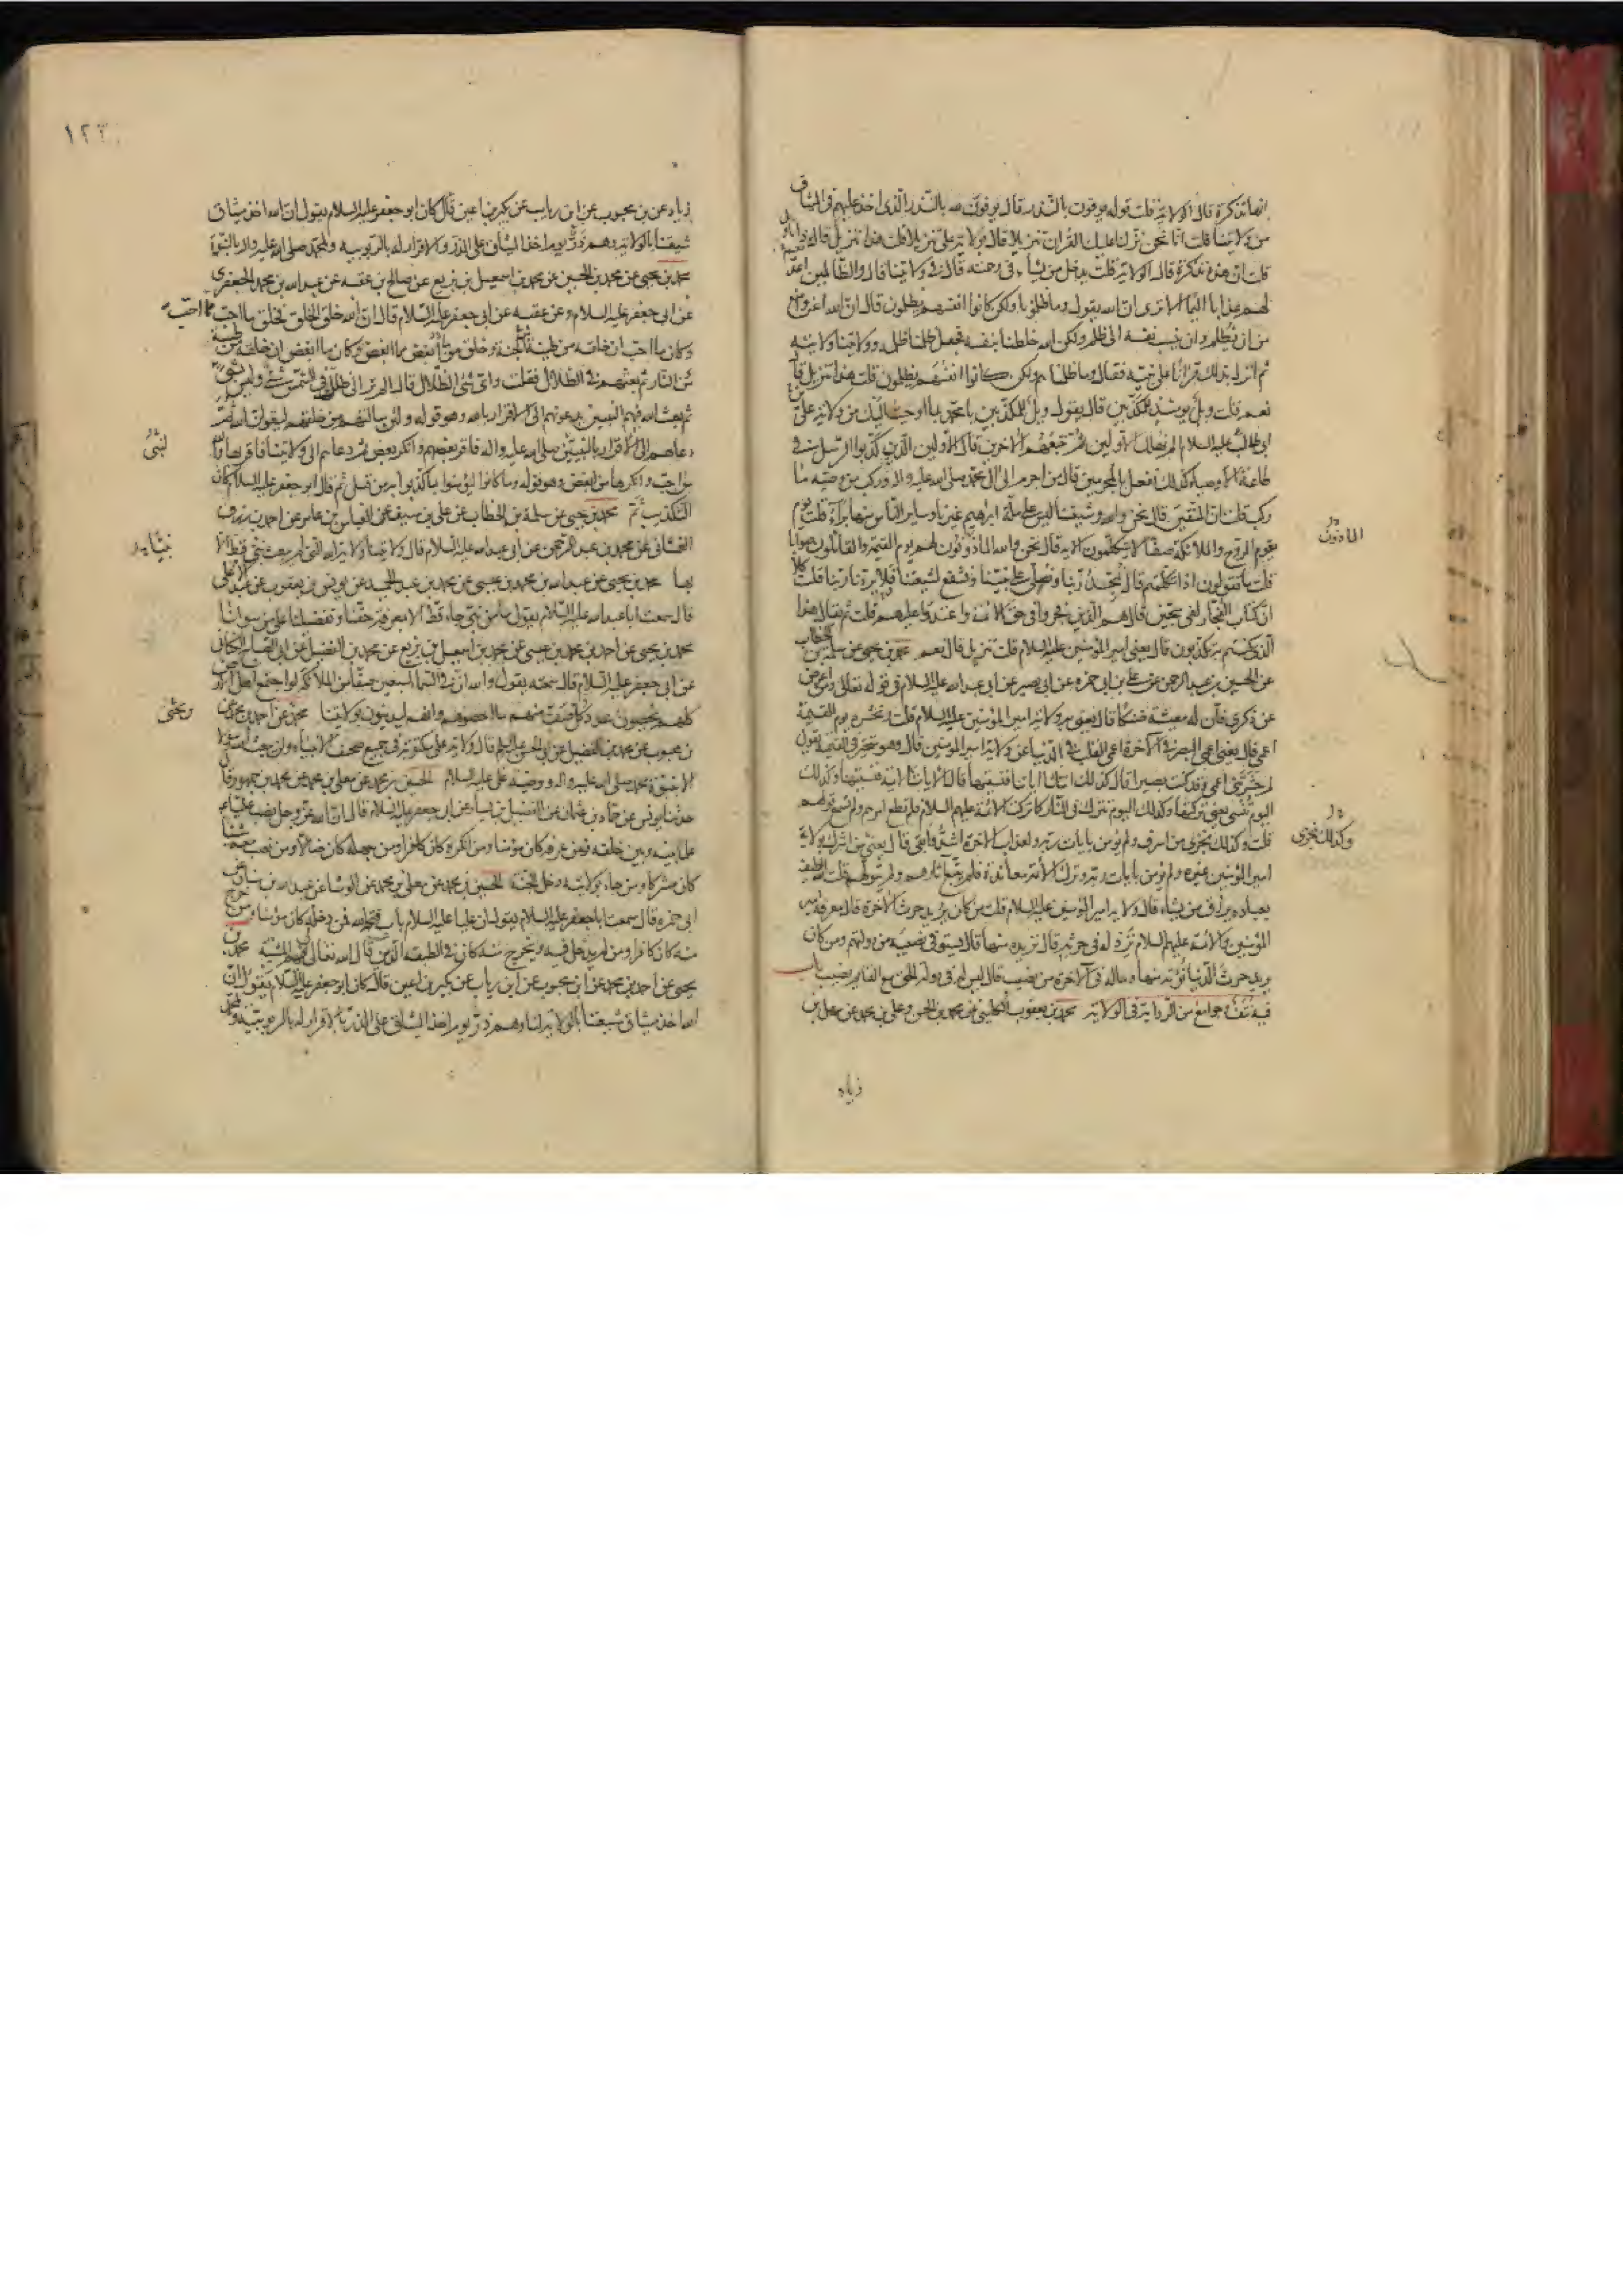 انها تذكرة قال الولاية قلت قوله يوفون بالنذر قال يوفون لله بالنذر الذى اخذ عليهم فى الميثاق
من ولايتنا قلت انا نحن نزلنا عليك القران تنزيلا قال بولاية على تنزيلا قلت هذا تنزيل قال نعم ذا تاويل
قلت ان هذه تذكرة قال الولاية قلت يدخل من يشاء فى رحمته قال فى ولايتنا قال والظالمين اعد
لهم عذابا اليما الا ترى ان الله يقول وما ظلمونا ولكن كانوا انفسهم يظلمون قال ان الله اعز وامنع
من ان يظلم وان ينسب نفسه الى ظلم ولكن الله خلطنا بنفسه فجعل ظلمنا ظلمه وولايتنا ولايته
ثم انزل بذلك قرانا على نبيه فقال وما ظلمناهم ولكن كانوا انفسهم يظلمون قلت هذا تنزيل قال
نعم قلت ويل يومئذ للمكذبين قال يقول ويل للمكذبين يا محمد بما اوحيت اليك من ولاية على بن
ابى طالب عليه السلام الم نهلك الاولين ثم نتبعهم الاخرين قال الاولين الذين كذبوا الرسل فى
طاعة الاوصياء كذلك نفعل بالمجرمين قال من اجرم الى ال محمد صلى الله عليه واله وركب من وصيه ما
ركب قلت ان المتقين قال نحن والله وشيعتنا ليس على ملة ابراهيم غيرنا وساير الناس منها براء قلت يوم
يقوم الروح والملائكة صفا لا يتكلمون الاية قال نحن والله الماذونون لهم يوم القيمة والقائلون صوابا
قلت ما تقولون اذا تكلمتم قال نمجد ربنا ونصلى على نبينا ونشفع لشيعتنا فلا يردنا ربنا قلت كلا
ان كتاب الفجار لفى سجين قال هم الذين فجروا فى حق الائمة واعتدوا عليهم قلت ثم يقال هذا
الذى كنتم به تكذبون قال يعنى امير المؤمنين عليه السلام قلت تنزيل قال نعم محمد بن يحيى عن سلمة بن الخطاب
عن الحسين بن عبد الرحمن عن على بن ابى حمزه عن ابى بصير عن ابى عبد الله عليه السلام فى قوله تعالى ومن اعرض
عن ذكرى فان له معيشة ضنكا قال يعنى به ولاية امير المؤمنين عليه السلام قلت ونحشره يوم القيمة
اعمى قال يعنى اعمى البصر فى الاخرة اعمى القلب فى الدنيا عن ولاية امير المؤمنين قال وهو متحير فى القيمة يقول
لم حشرتنى اعمى وقد كنت بصيرا قال كذلك اتتك اياتنا فنسيتها قال الايات الائمة فنسيتها وكذلك
اليوم تنسى يعنى تركتها وكذلك اليوم تترك فى النار كما تركت الائمة عليهم السلام فلم تطع امرهم ولم تسمع قولهم
قلت وكذلك نجزى من اسرف ولم يؤمن بايات ربه ولعذاب الاخرة اشد وابقى قال يعنى من اشرك بولاية
امير المؤمنين غيره ولم يؤمن بايات ربه وترك الائمة معاندة فلم يتبع آثارهم ولم يتولهم قلت الله لطيف
بعباده يرزق من يشاء قال ولاية امير المؤمنين عليه السلام قلت من كان يريد حرث الاخرة قال معرفة امير
المؤمنين والائمة عليهم السلام نزد له فى حرثه قال نزيده منها قال يستوفى نصيبه من دولتهم ومن كان
يريد حرث الدنيا نؤته منها وماله فى الاخرة من نصيب قال ليس له فى دولة الحق مع القايم نصيب باب
فيه نتف وجوامع من الرواية فى الولاية محمد بن يعقوب الكلينى عن محمد بن الحسن وعلى بن محمد عن سهل بن
زياد
الماذونون
وكذلك نجزى
١٢٣
زياد عن بن محبوب عن ابن رياب عن بكير بن اعين قال كان ابو جعفر عليه السلام يقول ان الله اخذ ميثاق
شيعتنا بالولاية وهم ذر يوم اخذ الميثاق على الذر والاقرار له بالربوبيه ولمحمد صلى الله عليه واله بالنبوة
محمد بن يحيى عن محمد بن الحسين عن محمد بن اسمعيل بن بزيع عن صالح بن عقبه عن عبد الله بن محمد الجعفرى
عن ابى جعفر عليه السلام وعن عقبه عن ابى جعفر عليه السلام قال ان الله خلق الخلق فخلق ما احب مما احب
وكان ما احب ان خلقه من طينة الجنة وخلق ما ابغض مما ابغض وكان ما ابغض ان خلقه من طينة
من النار ثم بعثهم فى الظلال فقلت واى شئ الظلال قال الم تر الى ظلك فى الشمس شئ وليس بشئ
ثم بعث الله فيهم النبيين يدعونهم الى الاقرار بالله وهو قوله ولئن سالتهم من خلقهم ليقولن الله ثم
دعاهم الى الاقرار بالنبيين صلى الله عليه واله فاقر بعضهم وانكر بعض ثم دعاهم الى ولايتنا فاقر بها والله
من احب وانكرها من ابغض وهو قوله وما كانوا ليؤمنوا بما كذبوا به من قبل ثم قال ابو جعفر عليه السلام كان
التكذيب ثم محمد بن يحيى عن سلمة بن الخطاب عن على بن سيف عن العباس بن عامر عن احمد بن رزق
الغشانى عن محمد بن عبد الرحمن عن ابى عبد الله عليه السلام قال ولايتنا ولاية الله التى لم يبعث نبى قط الا
بها محمد بن يحيى عن عبد الله بن محمد بن عيسى عن محمد بن عبد الحميد عن يونس بن يعقوب عن عبد الاعلى
قال سمعت ابا عبد الله عليه السلام يقول ما من نبى جاء قط الا بمعرفة حقنا وتفضيلنا على من سوانا
محمد بن يحيى عن احمد بن محمد بن عيسى عن محمد بن اسمعيل بن بزيع عن محمد بن الفضيل عن ابى الصباح الكنانى
عن ابى جعفر عليه السلام قال سمعته يقول والله ان فى السماء لسبعين صفا من الملائكة لو اجتمع اهل الارض
كلهم يحصون عدد كل صف منهم ما احصوهم وانهم ليدينون بولايتنا محمد عن احمد بن محمد عن
بن محبوب عن محمد بن الفضيل عن ابى الحسن عليه السلم قال ولاية على مكتوبة فى جميع صحف الانبياء ولن يبعث الله رسولا
الا بنبوة محمد صلى الله عليه واله ووصيه على عليه السلام الحسين بن محمد عن معلى بن محمد عن محمد بن جمهور قال
حدثنا يونس عن حماد بن عثمان عن الفضيل بن يسار عن ابى جعفر عليه السلام قال ان الله عز وجل نصب عليا ع
علما بينه وبين خلقه فمن عرفه كان مؤمنا ومن انكره كان كافرا ومن جهله كان ضالا ومن نصب معه شيئا
كان مشركا ومن جاء بولايته دخل الجنة الحسين بن محمد عن معلى بن محمد عن الوشا عن عبد الله بن سنان عن
ابى حمزه قال سمعت ابا جعفر عليه السلام يقول ان عليا عليه السلام باب فتحه الله فمن دخله كان مؤمنا ومن خرج
منه كان كافرا ومن لم يدخل فيه ولم يخرج منه كان فى الطبقه الذين قال الله تعالى لى فيهم المشية محمد بن
يحيى عن احمد بن محمد عن ابن محبوب عن ابن رياب عن بكير بن اعين قال كان ابو جعفر عليه السلام يقول ان
الله اخذ ميثاق شيعتنا بالولاية لنا وهم ذر يوم اخذ الميثاق على الذر بالاقرار له بالربوبية ولمحمد